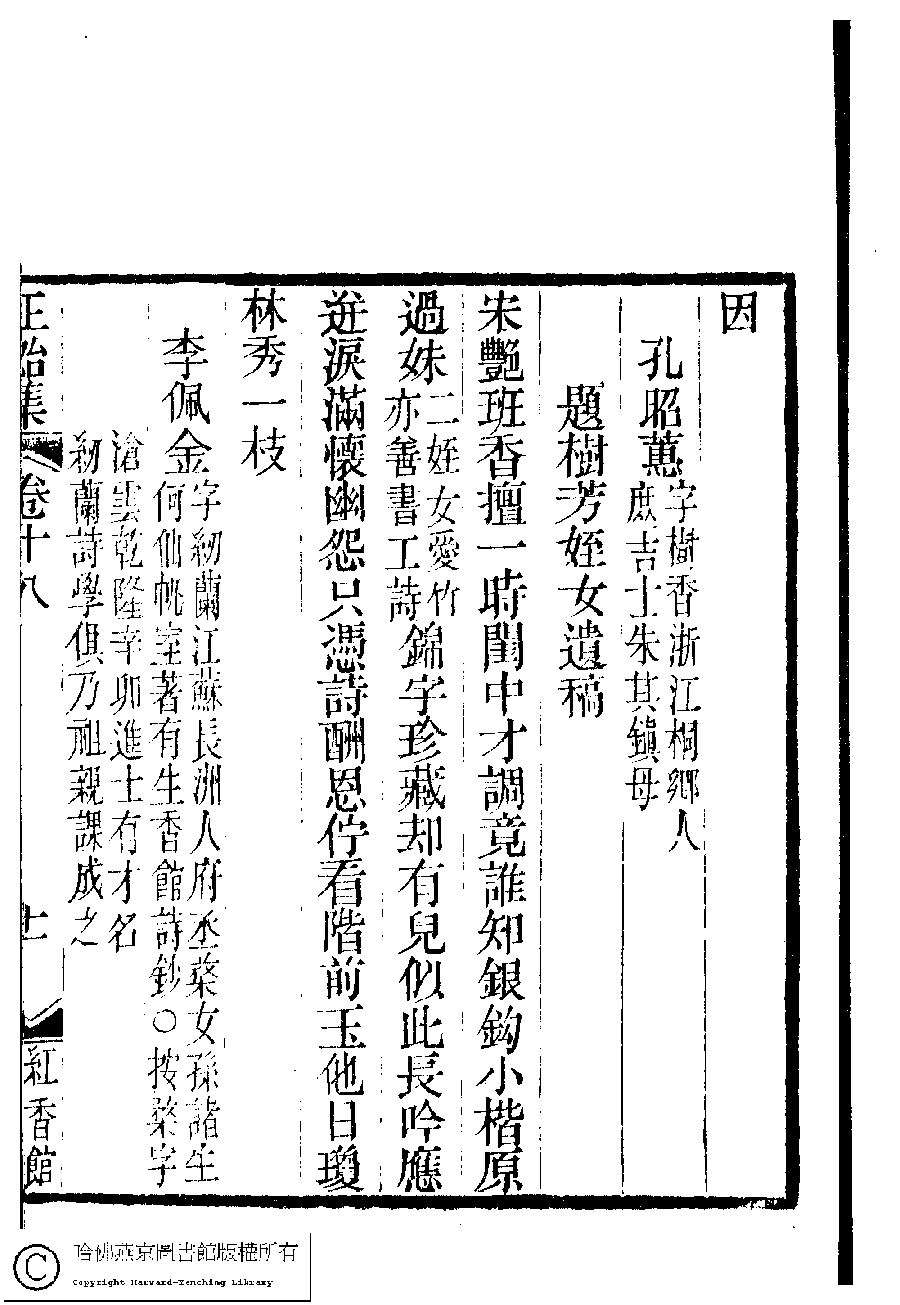 因
孔昭蕙
字樹香浙江桐鄉人
庶吉士朱其鎮母
題樹芳姪女遺稿
宋艷班香擅一時閨中才調竟誰知銀鈎小楷原
過妹
二姪女愛竹
亦善書工詩
錦字珍藏却有兒似此長吟應
迸淚滿懷幽怨只憑詩酬恩佇看階前玉他日瓊
林秀一枝
李佩金
字紉蘭江蘇長洲人府丞棨女孫諸生
何仙帆室著有生香館詩鈔○按棨字
滄雲乾隆辛卯進士有才名
紉蘭詩學俱乃祖親課成之
正始集
卷十八
十一
紅香館
哈佛燕京圖書館版權所有
Copyright Harvard-Yenching Library